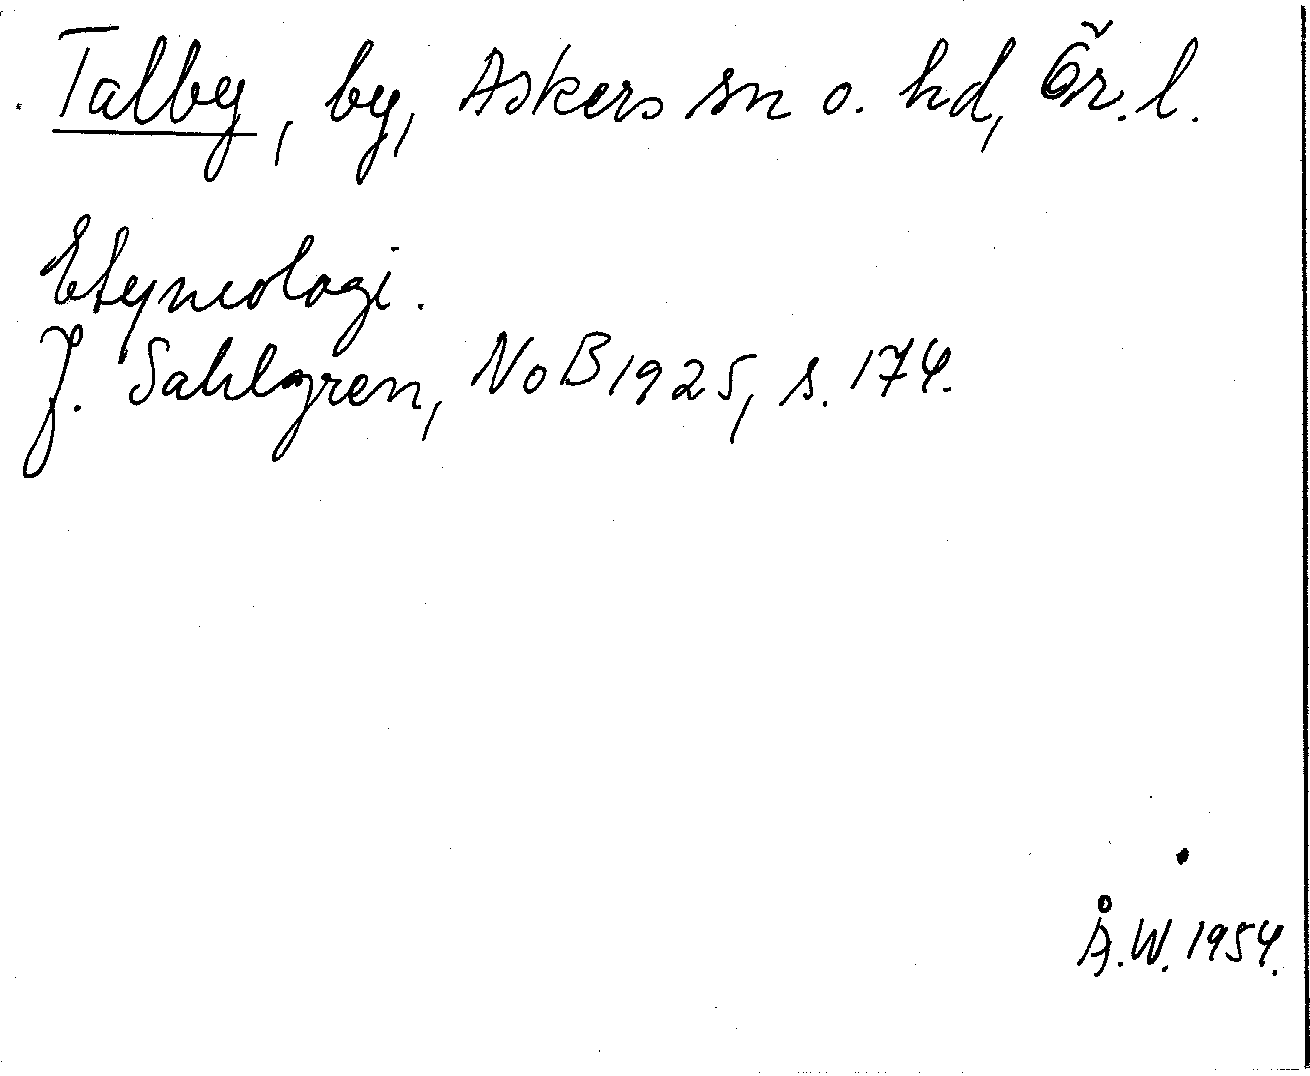 Talby, by, Askers sn o. hd, Ör. l.
Etymologi.
J. Sahlgren, NoB 1925, s. 174.
Å.W. 1954.